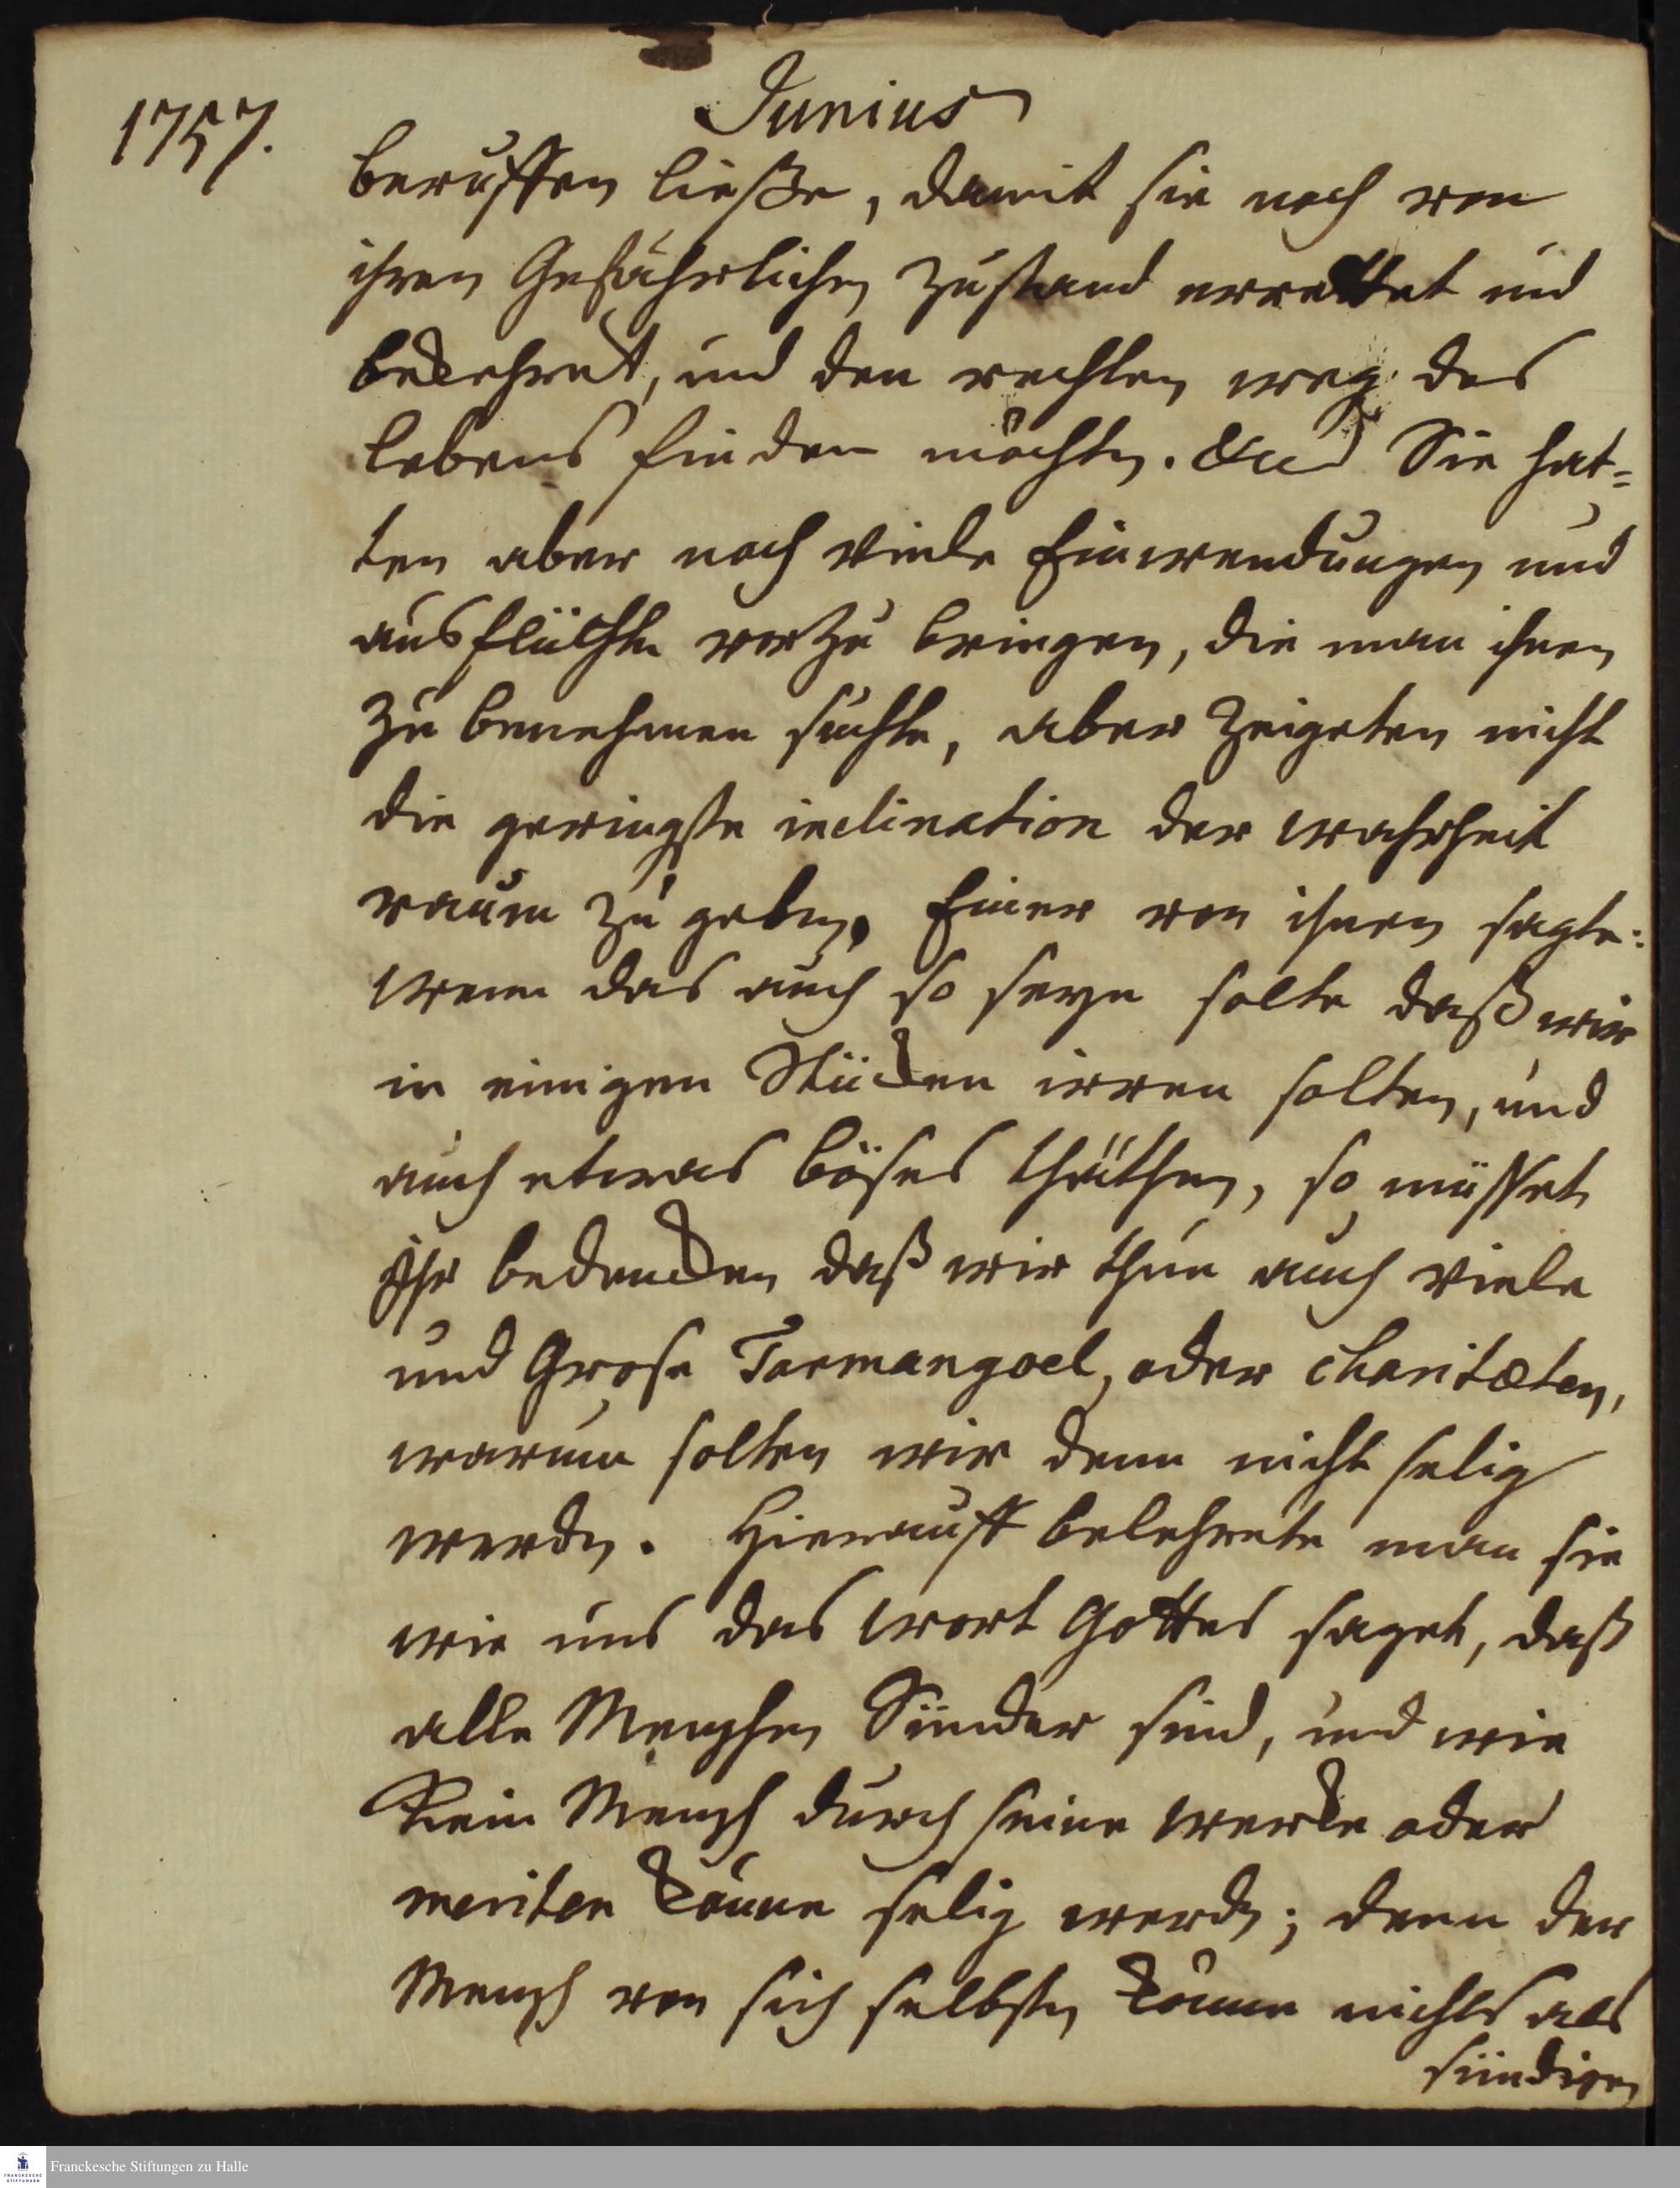 1757.
Junius
beruffen ließe, damit sie noch von
ihren Gefährlichen Zustand errettet und
bekehret, und den rechten weg des
lebens finden möchten. Sie hat=
ten aber noch viele Einwendungen und
ausflüchte vorzu bringen, die man ihnen
zu benehmen suchte, aber zeigeten nicht
die geringste inclination der wahrheit
raum zu geben. Einer von ihnen sagte:
wenn das auch so seyn solte daß wir
in einigen Stücken irren solten, und
auch etwas böses thäthen, so müsset
Ihr bedencken daß wir thun auch viele
und Grose Tarmangoel, oder charitæten,
warum solten wir denn nicht selig
werden. Hierauff belehrete man sie
wie uns das wort Gottes saget, daß
alle Menschen Sünder sind, und wie
Kein Mensch durch seine wercke oder
meriten könne selig werden; denn der
Mensch von sich selbsten könne nichts als
sündigen
Franckesche Stiftungen zu Halle